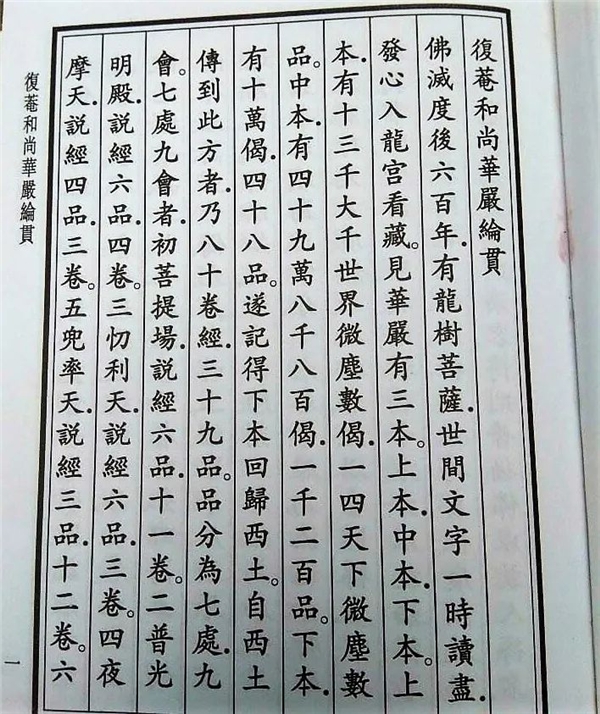 復菴和尚華嚴綸貫
佛滅度後六百年.有龍樹菩薩.世間文字一時讀盡.
發心入龍宮看藏。見華嚴有三本。上本.中本.下本。上
本.有十三千大千世界微塵數偈.一四天下微塵數
品。中本.有四十九萬八千八百偈.一千二百品。下本.
有十萬偈.四十八品。遂記得下本回歸西土。自西土
傳到此方者.乃八十卷經.三十九品。品分為七處.九
會。七處九會者.初菩提場.說經六品.十一卷。二普光
明殿.說經六品.四卷。三忉利天.說經六品.三卷。四夜
摩天.說經四品.三卷。五兜率天.說經三品.十二卷。六
復菴和尚華嚴綸貫
一